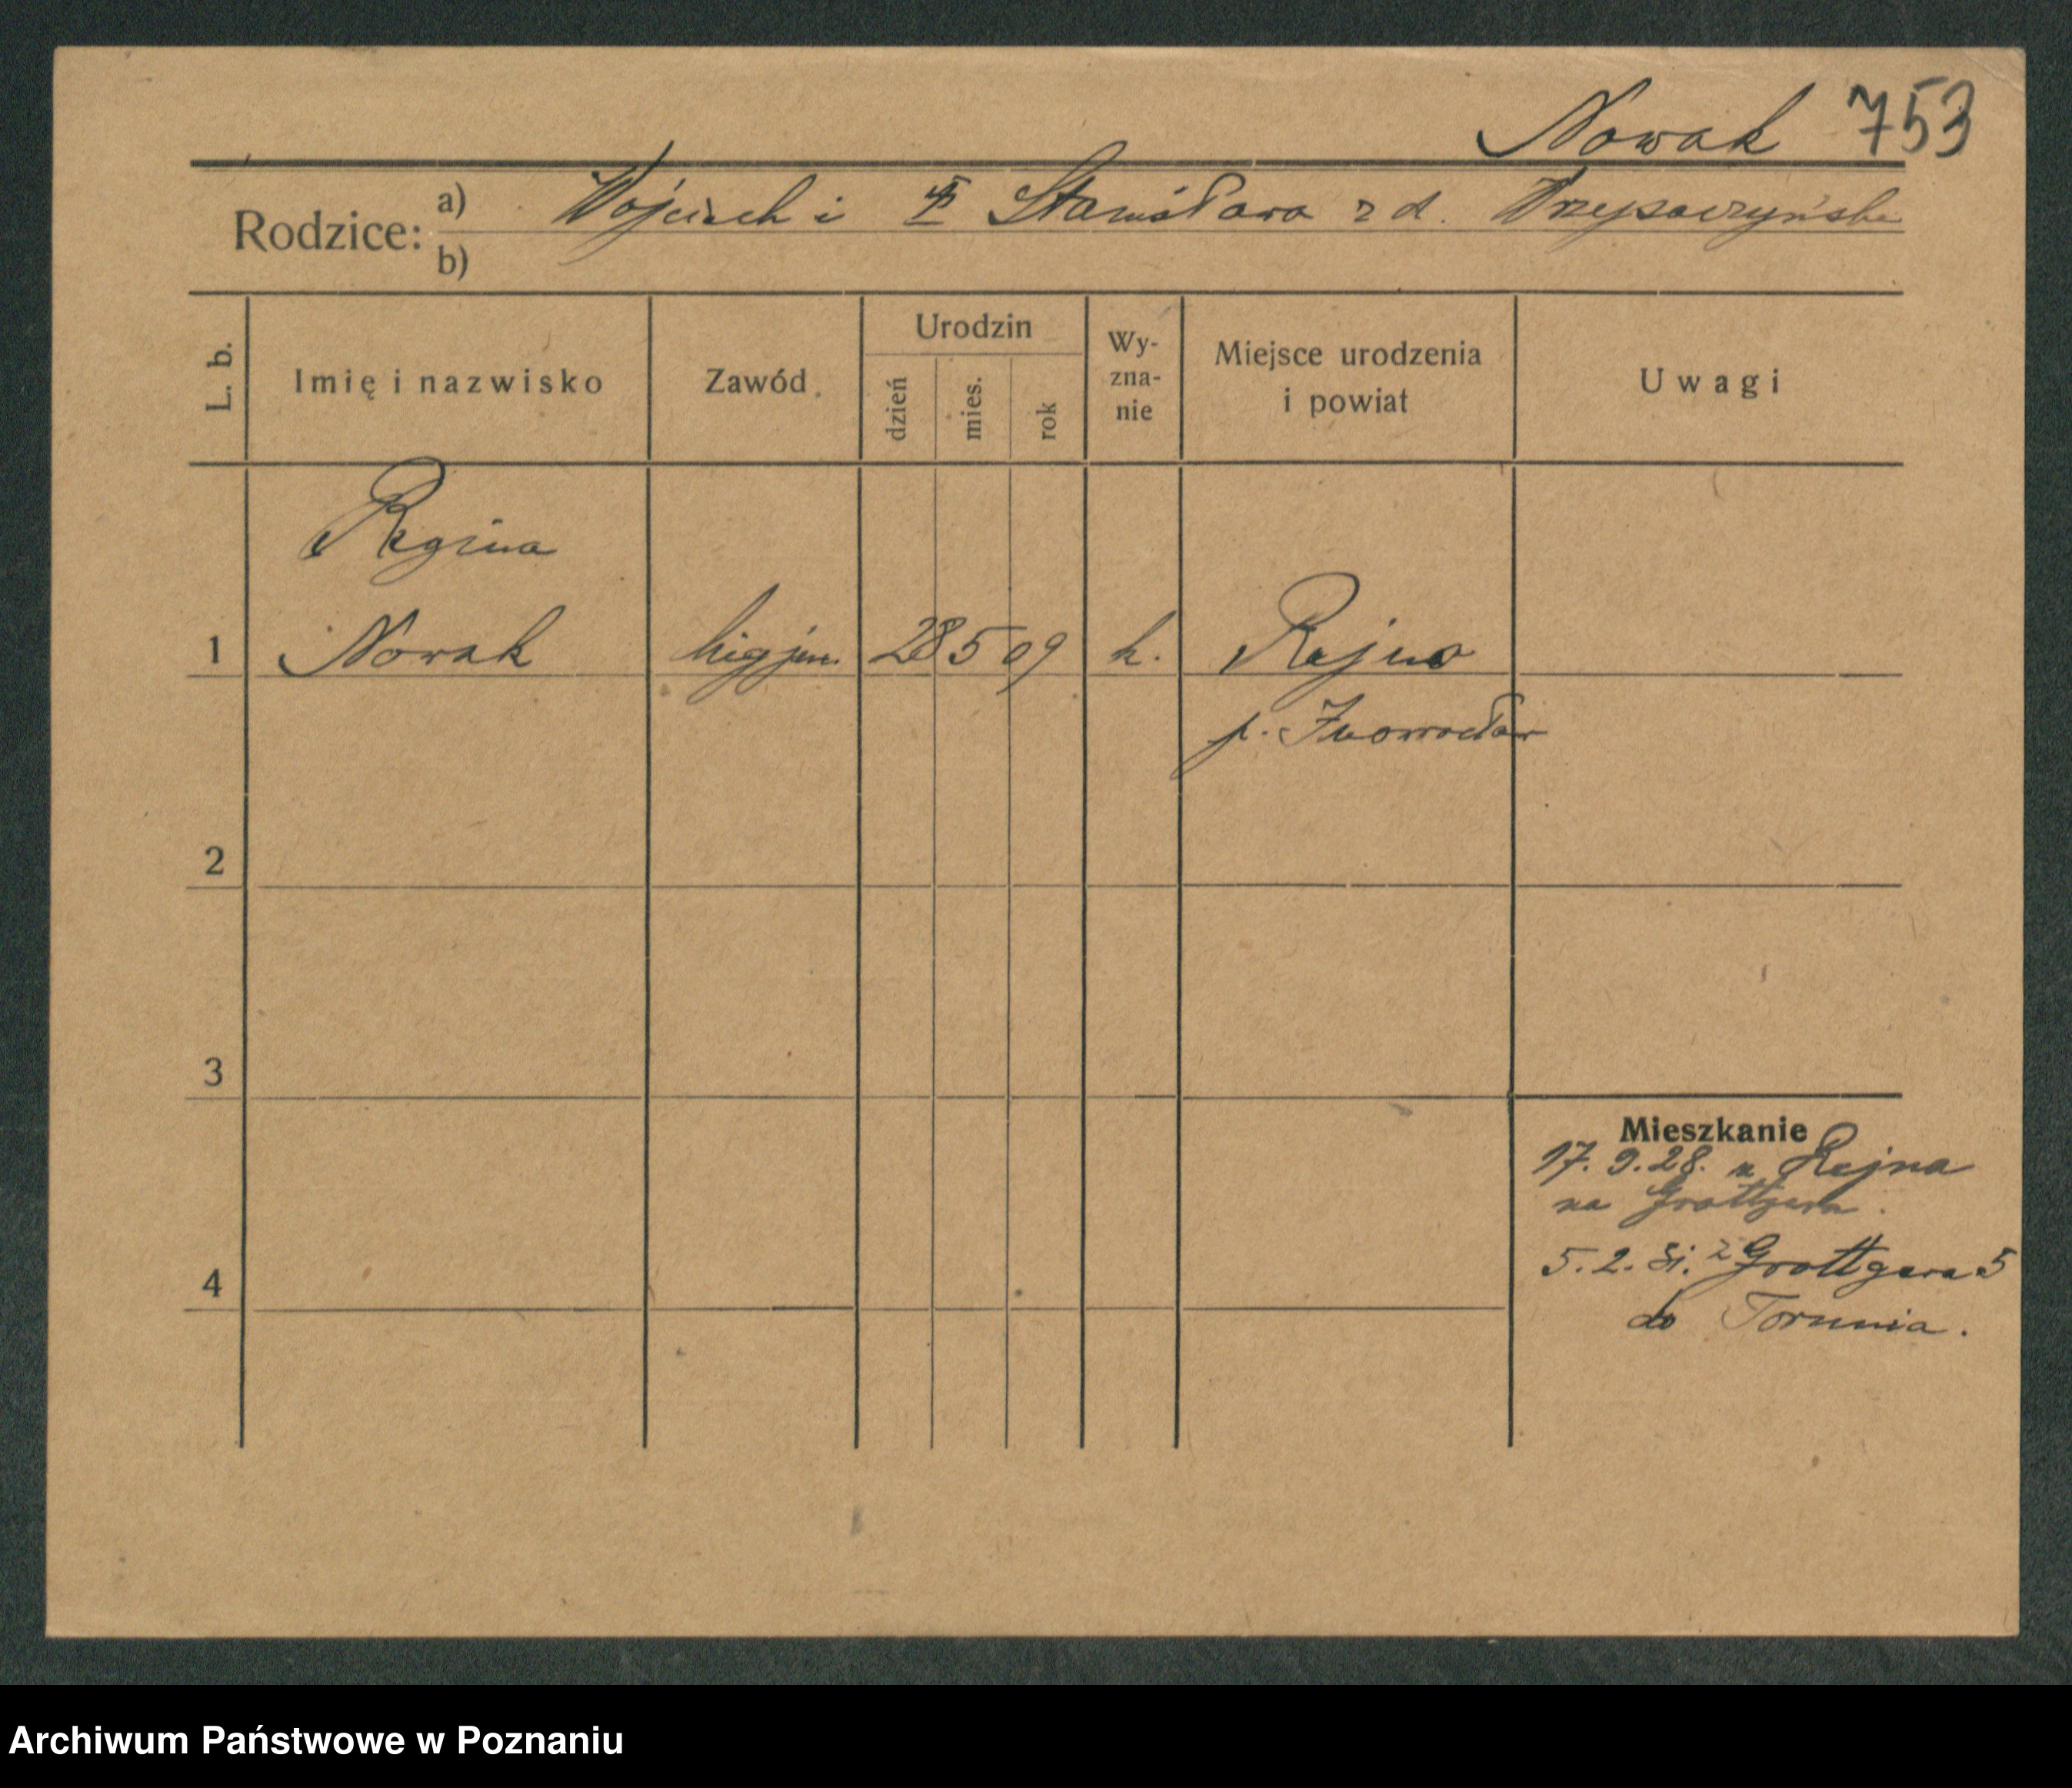 Nowak 753
Rodzice: a) Wojciech i Stanisława z d.
b)
L. b. Imię i nazwisko Zawód Urodzin dzień mies. rok Wy-zna-nie Miejsce urodzenia i powiat Uwagi
Regina
1 Nowak higjen. 28 5 09 k. Rejna
p. Inowrocław
2
3
Mieszkanie
17. 9. 28. z Rejna
na Grottgera.
5. 2. 31. z Grottgera 5
4
do Torunia.
Archiwum Państwowe w Poznaniu